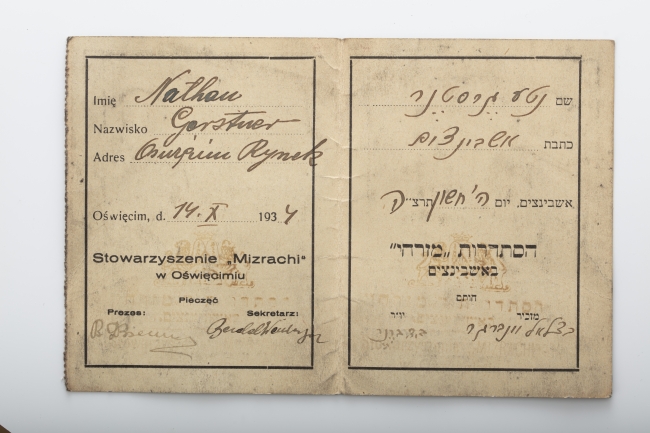 Imię Nathan
Nazwisko Gerstner
Adres Oswięcim Rynek
Oświęcim, d. 14. X 1934
Stowarzyszenie „Mizrachi"
w Oświęcimiu
Pieczęć
Prezes: Sekretarz:
שם נטע גרסטנר
כתבת אשבינצים
אשבינצים, יום ה' חשון תרצ"ה
הסתדרות „מזרחי"
באשבינצים
חותם
מזכיר יו״ר
בצלאל ווינברגר